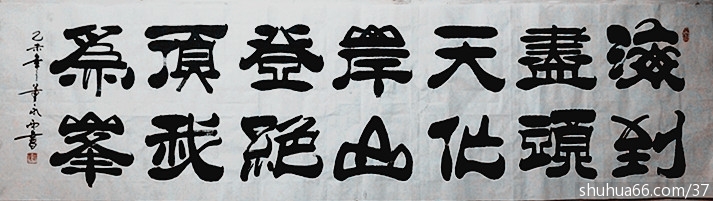 海到
盡頭
天作
岸山
登絕
頂我
爲峯
乙未年董永書
shuhua66.com/37